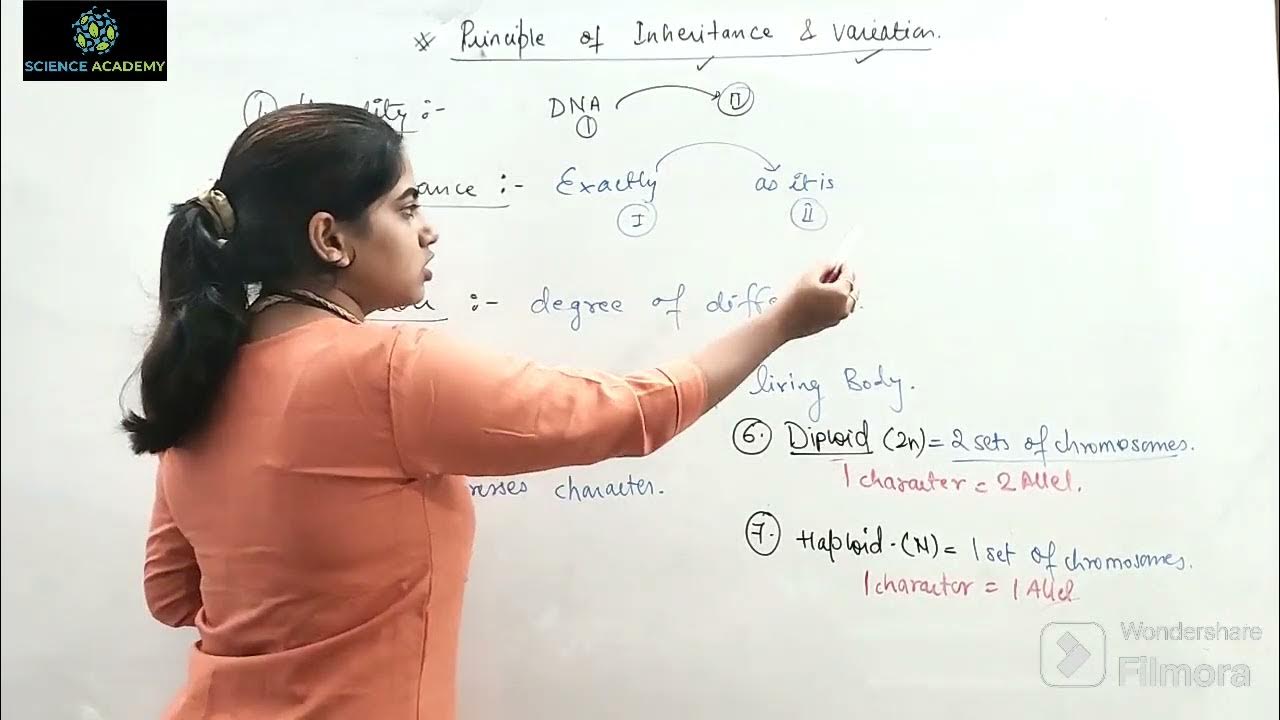 SCIENCE ACADEMY
* Principle of Inheritance & Variation.
① :- DNA → II
I
:- Exactly → as it is
I II
:- degree of
living Body.
6. Diploid (2n) = 2 sets of chromosomes.
1 character = 2 Allel.
character.
7. Haploid - (N) = 1 set of chromosomes.
1 character = 1 Allel
Wondershare
Filmora